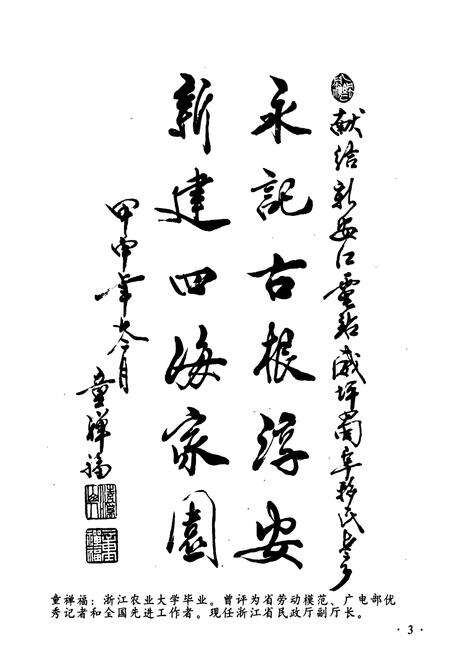 献给新安江电站威坪蜀阜移民乡
永记古根淳安
新建四海家园
甲申年
月
童禅福
童禅福：浙江农业大学毕业。曾评为省劳动模范、广电部优
秀记者和全国先进工作者。现任浙江省民政厅副厅长。
· 3 ·